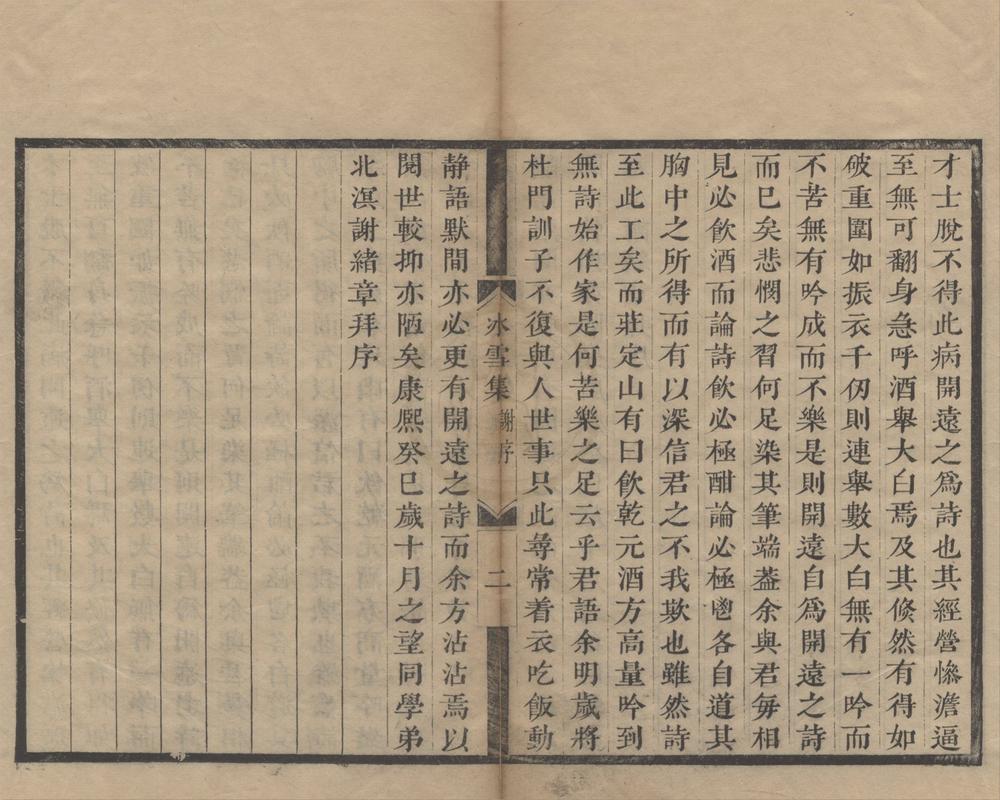 才士脫不得此病開遠之爲詩也其經營慘澹逼
至無可翻身急呼酒舉大白焉及其倏然有得如
破重圍如振衣千仞則連舉數大白無有一吟而
不苦無有吟成而不樂是則開遠自爲開遠之詩
而已矣悲憫之習何足染其筆端葢余與君每相
見必飮酒而論詩飮必極酣論必極鬯各自道其
胸中之所得而有以深信君之不我欺也雖然詩
至此工矣而莊定山有曰飮乾元酒方高量吟到
無詩始作家是何苦樂之足云乎君語余明歲將
杜門訓子不復與人世事只此尋常着衣吃飯動
氷雪集 謝序 二
静語默間亦必更有開遠之詩而余方沾沾焉以
閱世較抑亦陋矣康熙癸巳歲十月之望同學弟
北溟謝緒章拜序